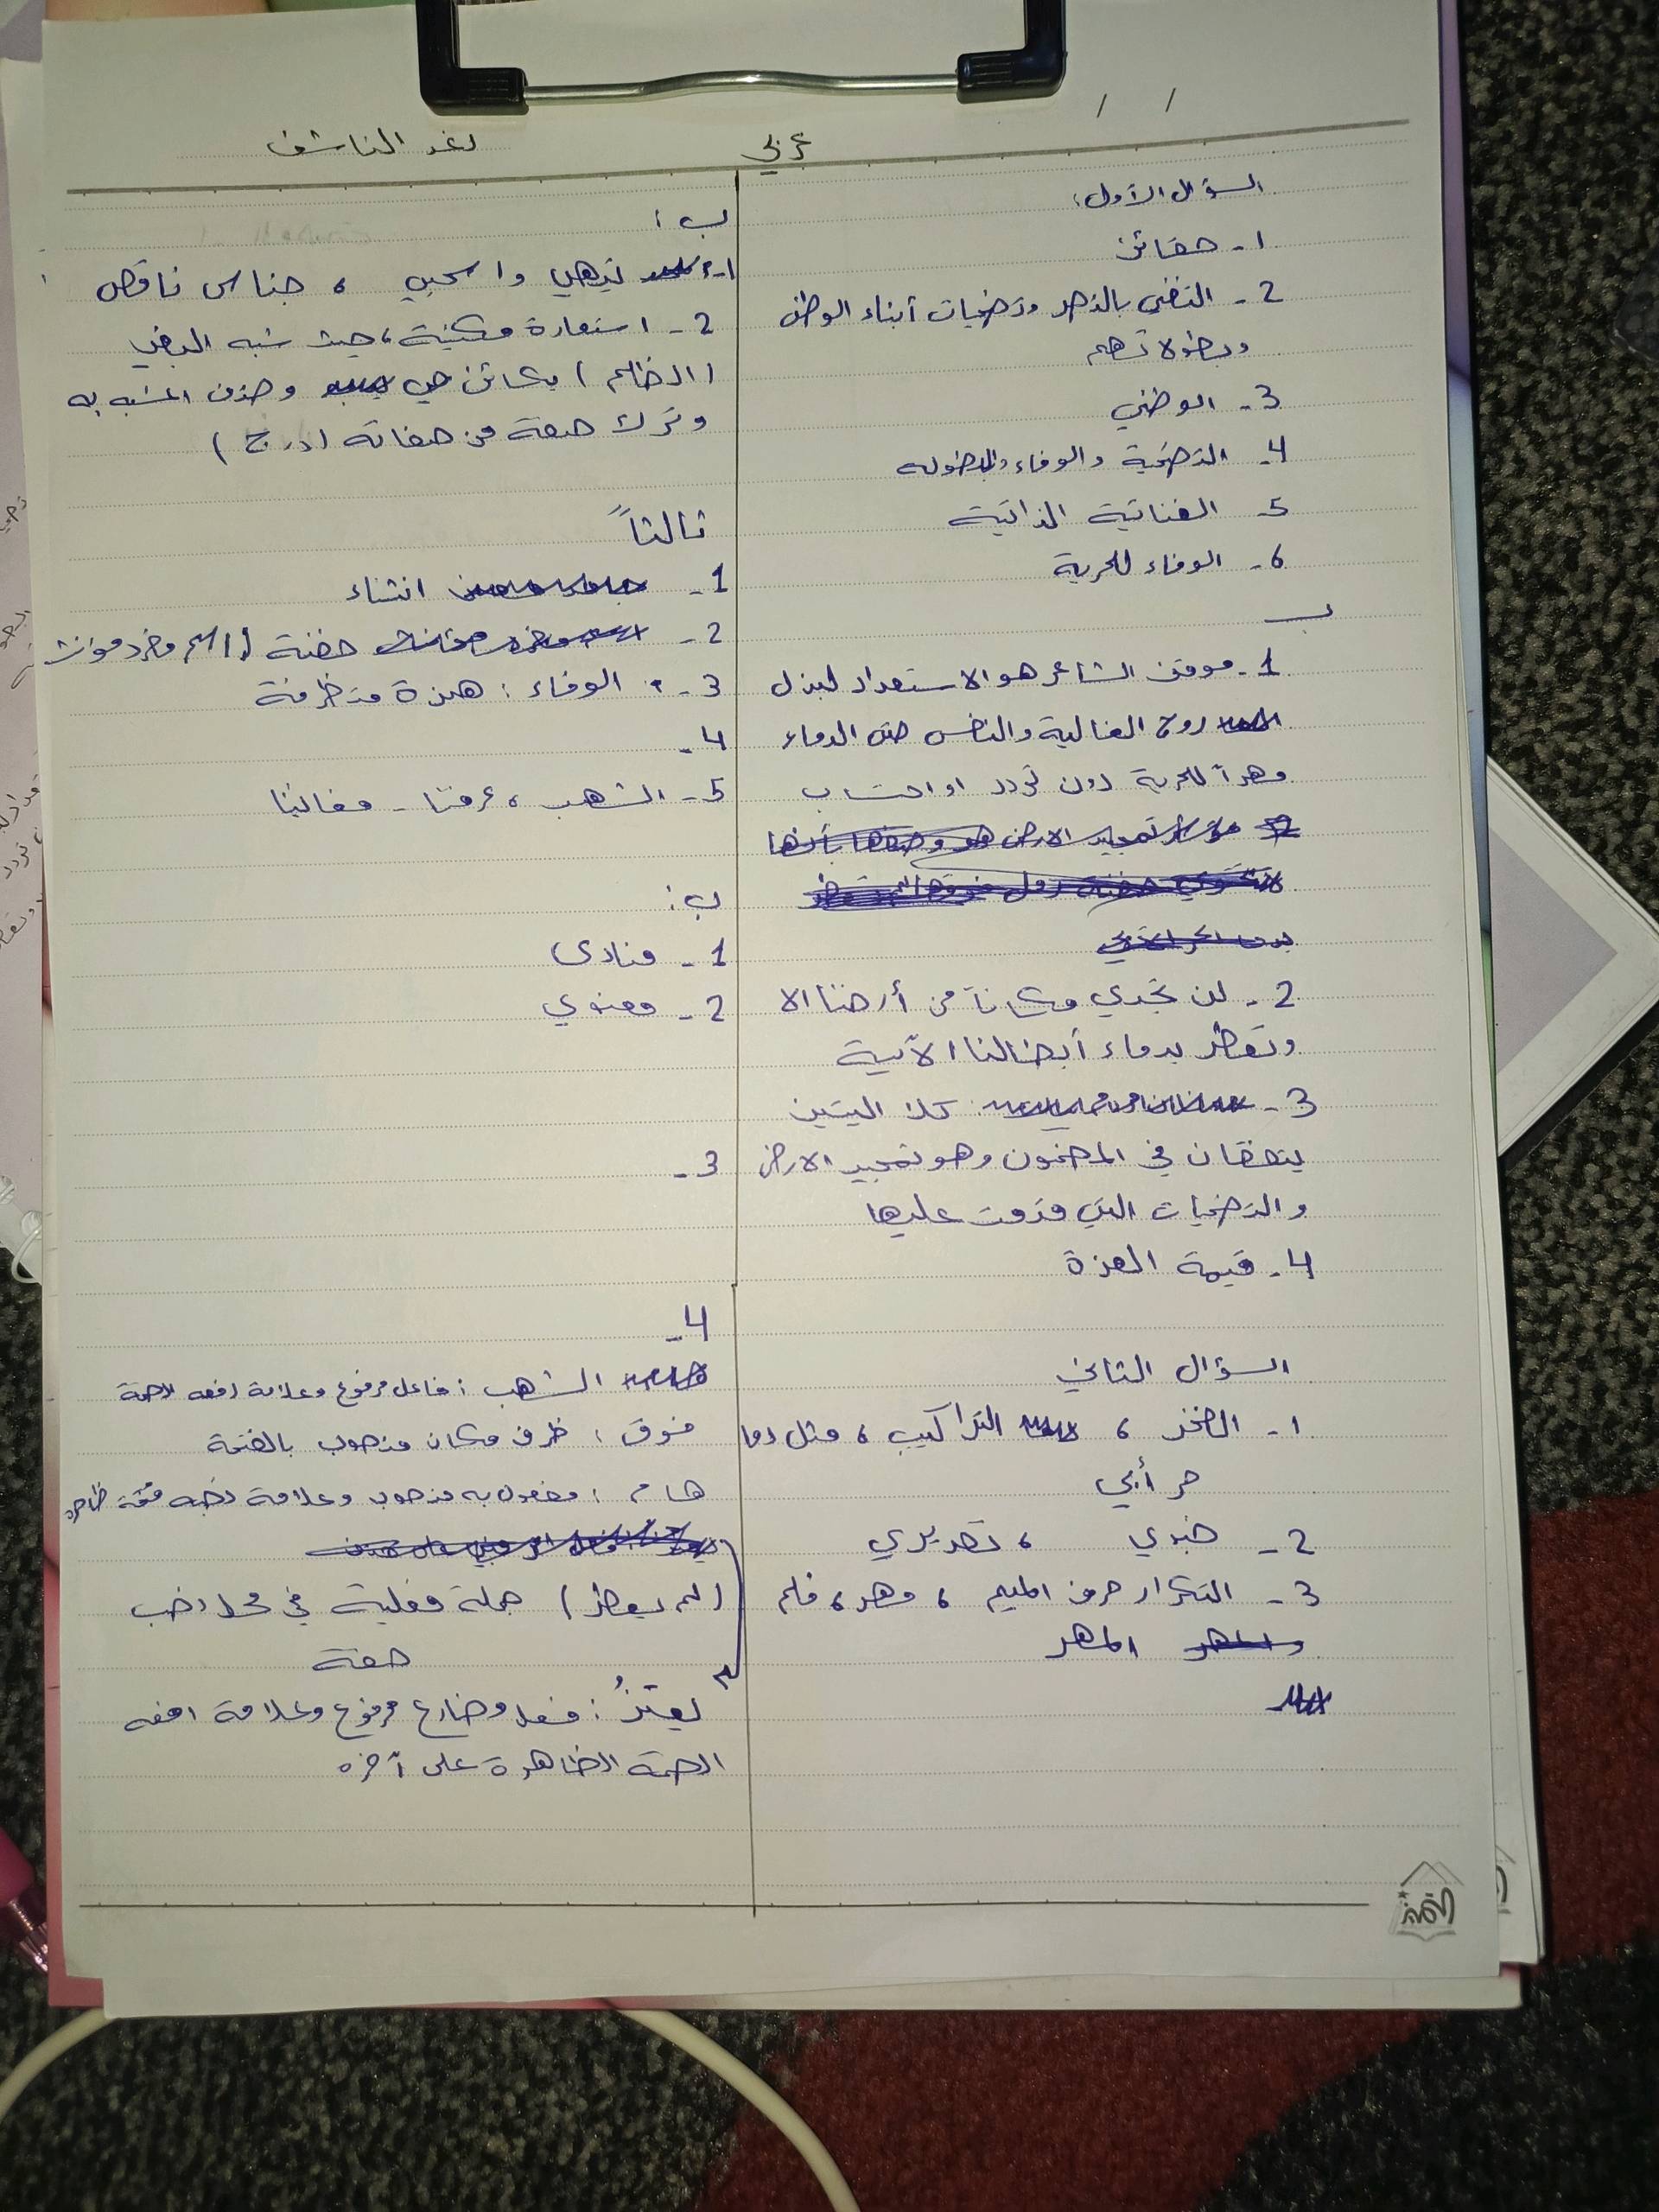 عربي
رغد الناشف
السؤال الأول:
1- حقائق
2- التغني بالنصر وتضحيات أبناء الوطن
وبطولاتهم
3- الوطني
4- التضحية والوفاء والبطوله
5- الغنائية الذاتية
6- الوفاء للحرية
ب
1- موقف الشاعر هو الاستعداد لبذل
روح الغالية والنفس حتى الدماء
مهراً للحرية دون تردد او احتساب
2- لن تجدي مكاناً من أرضنا الا
وتعطر بدماء أبطالنا الأبية
3- كلا البيتين
يتفقان في المضمون وهو تمجيد الارض
والتضحيات التي قدمت عليها
4- قيمة العزة
السؤال الثاني
1- الفخر ، التراكيب ، مثل دما
حر أبي
2- خبري ، تقريري
3- التكرار حرف الميم ، مهر ، فلم
المهر
ب:
1- تيهي واسحبي ، جناس ناقص
2- استعارة مكنية ، حيث شبه البغي
(الظلم) بكائن حي وحذف المشبه به
وترك صفة من صفاته (درج)
ثالثاً
1- انتشاء
2- حفنة (اسم مفرد مؤنث
3- الوفاء : همزة متطرفة
4-
5- الشهب ، عرفتا - مغانينا
ب:
1- منادى
2- معنوي
3-
4-
الشهب : فاعل مرفوع وعلامة رفعه الضمة
فوق : ظرف مكان منصوب بالفتحة
هام : مفعول به منصوب وعلامة نصبه فتحة ظاهرة
(لم يعطر) جملة فعلية في محل نصب
صفة
يعتزُ : فعل مضارع مرفوع وعلامة رفعه
الضمة الظاهرة على آخره